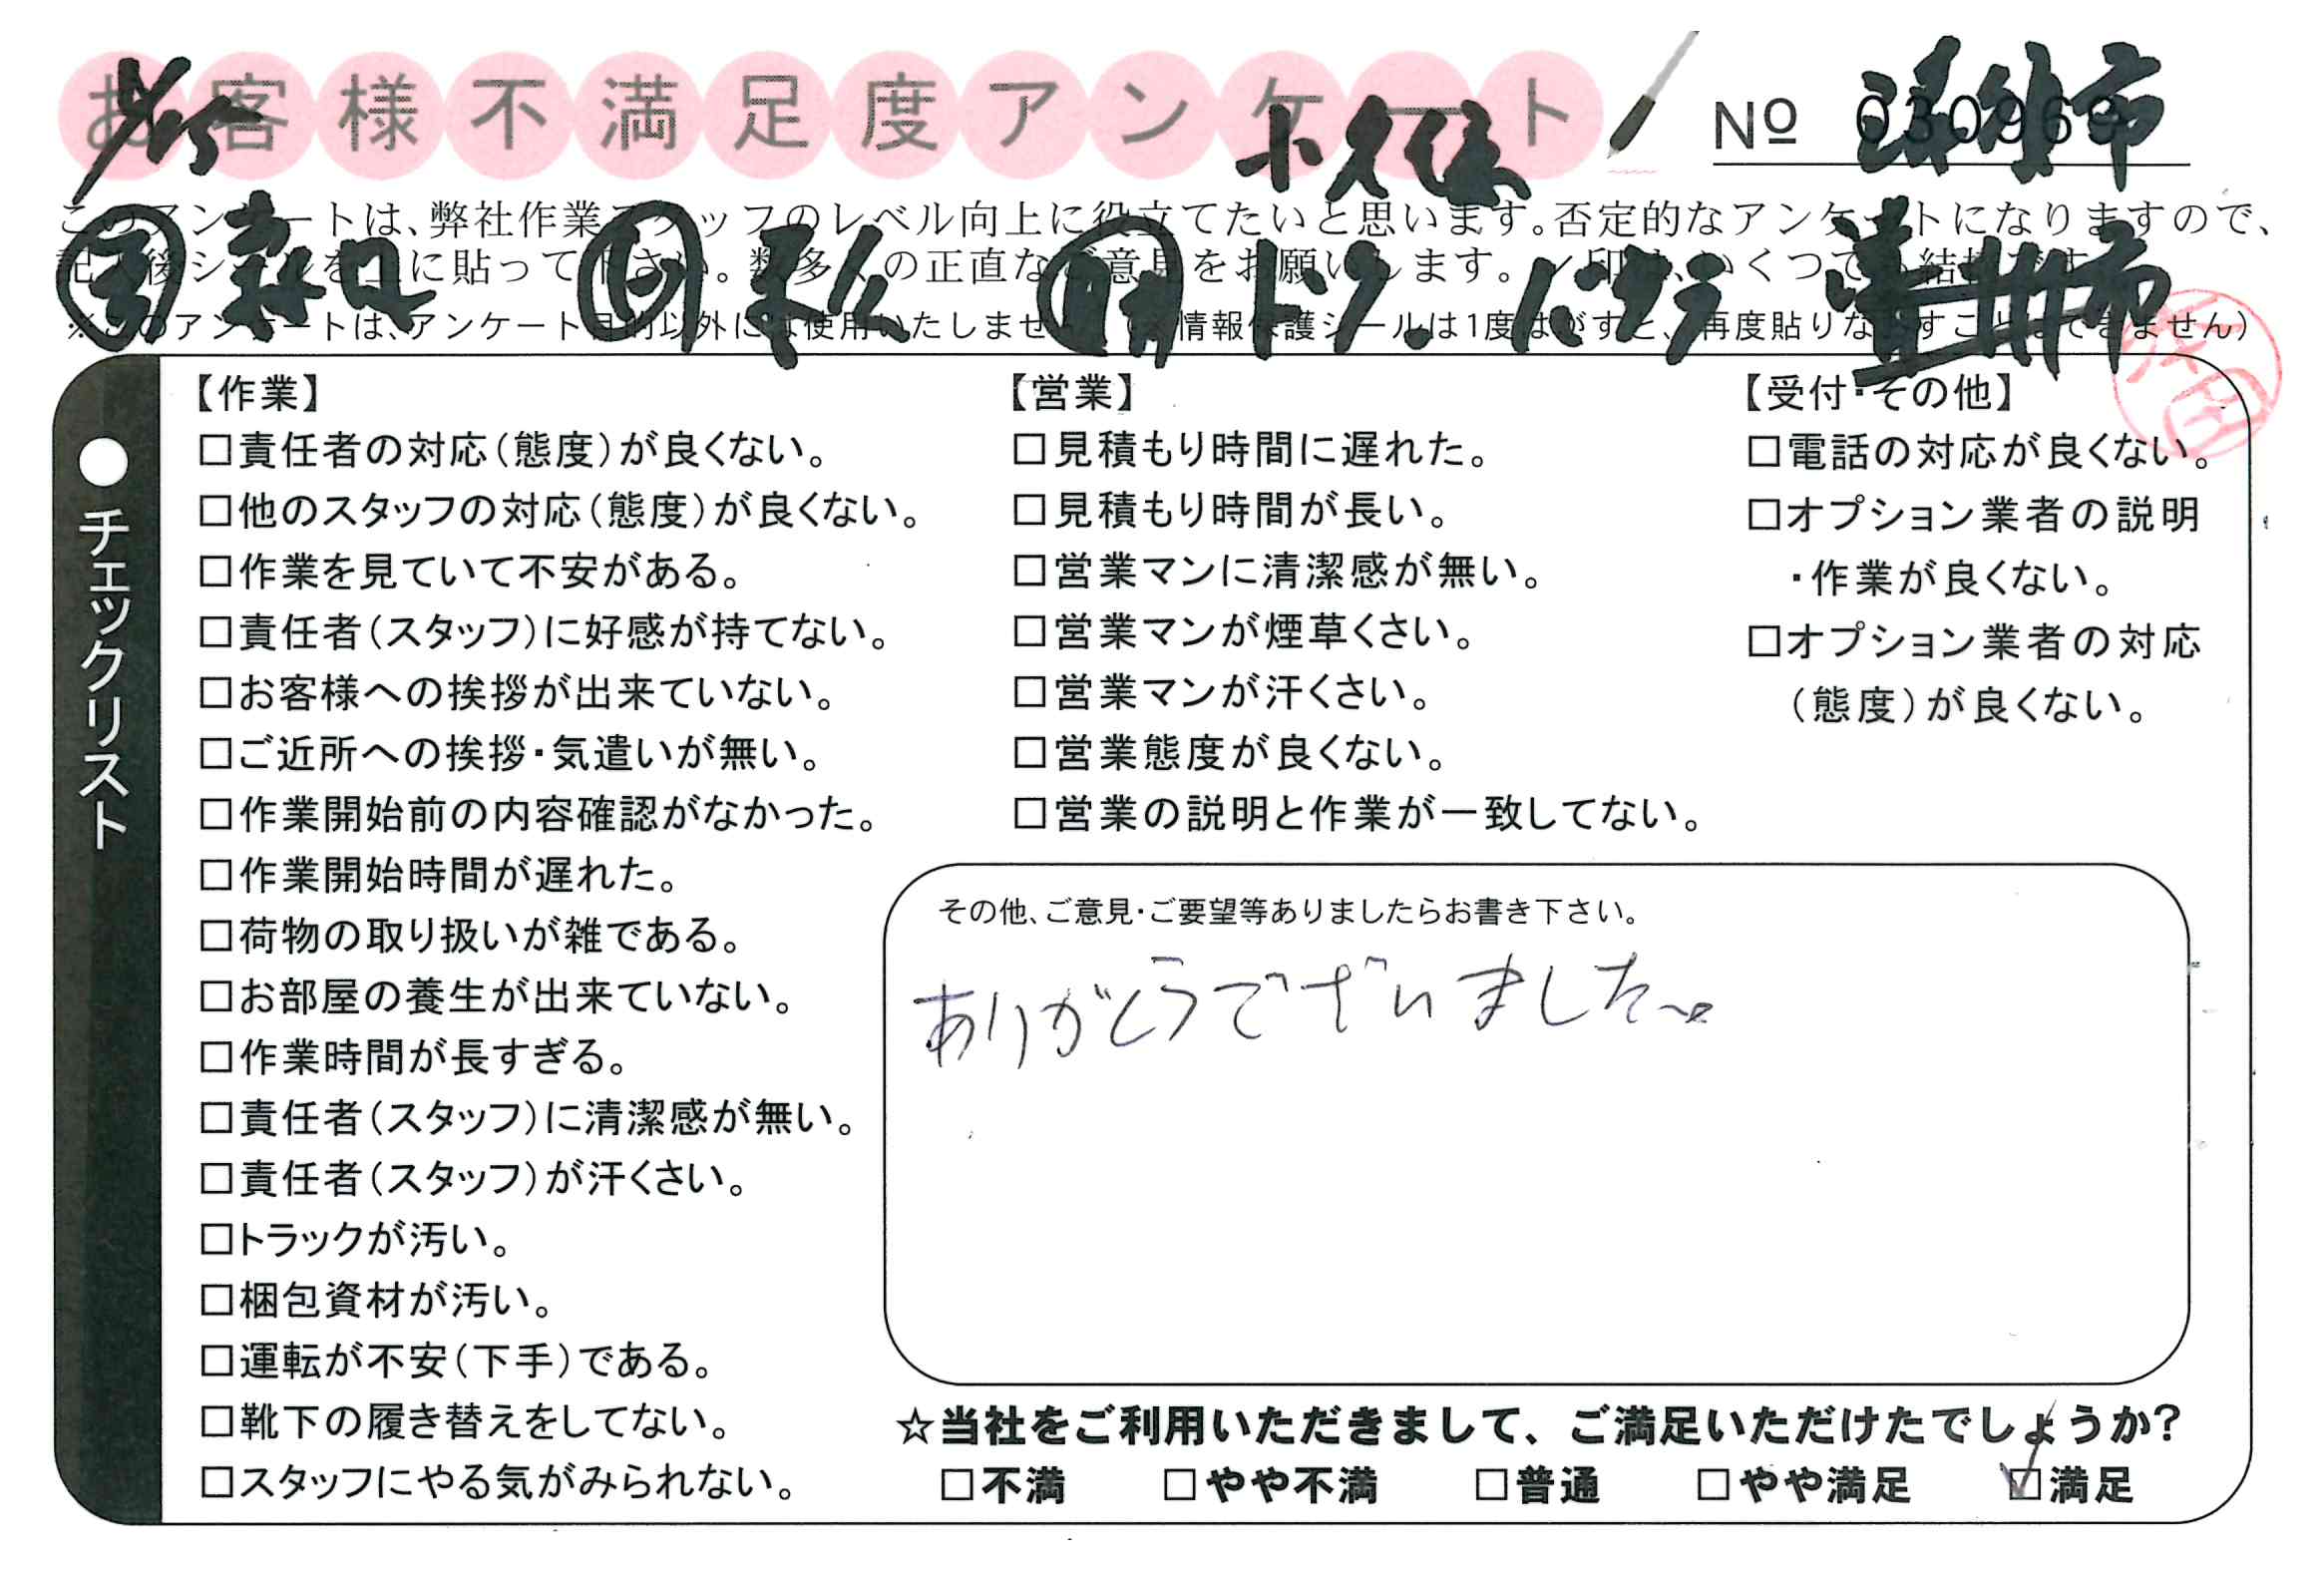 お客様不満足度アンケート
Nº 030969
小久保
このアンケートは、弊社作業スタッフのレベル向上に役立てたいと思います。否定的なアンケートになりますので、
記入後シールを上に貼って下さい。数多くの正直なご意見をお願いします。✓印は、いくつでも結構です。
森口
※このアンケートは、アンケート目的以外には使用いたしません。(※情報保護シールは1度はがすと、再度貼りなおすことはできません)
●チェックリスト
【作業】
□責任者の対応(態度)が良くない。
□他のスタッフの対応(態度)が良くない。
□作業を見ていて不安がある。
□責任者(スタッフ)に好感が持てない。
□お客様への挨拶が出来ていない。
□ご近所への挨拶・気遣いが無い。
□作業開始前の内容確認がなかった。
□作業開始時間が遅れた。
□荷物の取り扱いが雑である。
□お部屋の養生が出来ていない。
□作業時間が長すぎる。
□責任者(スタッフ)に清潔感が無い。
□責任者(スタッフ)が汗くさい。
□トラックが汚い。
□梱包資材が汚い。
□運転が不安(下手)である。
□靴下の履き替えをしてない。
□スタッフにやる気がみられない。
【営業】
□見積もり時間に遅れた。
□見積もり時間が長い。
□営業マンに清潔感が無い。
□営業マンが煙草くさい。
□営業マンが汗くさい。
□営業態度が良くない。
□営業の説明と作業が一致してない。
【受付・その他】
□電話の対応が良くない。
□オプション業者の説明
・作業が良くない。
□オプション業者の対応
(態度)が良くない。
その他、ご意見・ご要望等ありましたらお書き下さい。
ありがとうございました
☆当社をご利用いただきまして、ご満足いただけたでしょうか?
□不満 □やや不満 □普通 □やや満足 ☑満足